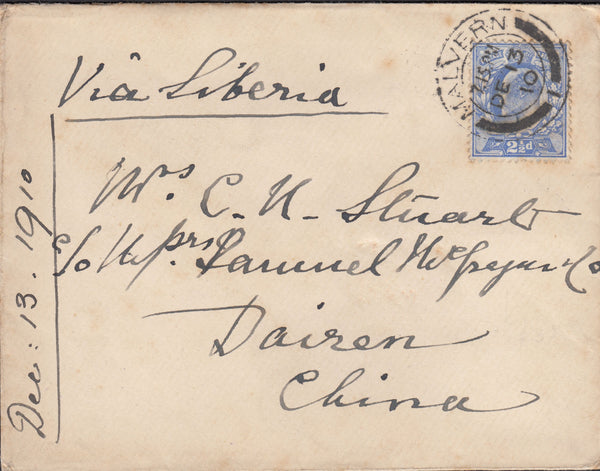 Via Siberia
MALVERN
7.15 PM
DE 13
10
2½d
Mrs C. N. Stuart
c/o Messrs Samuel McGregor & Co
Dairen
China
Dec: 13. 1910